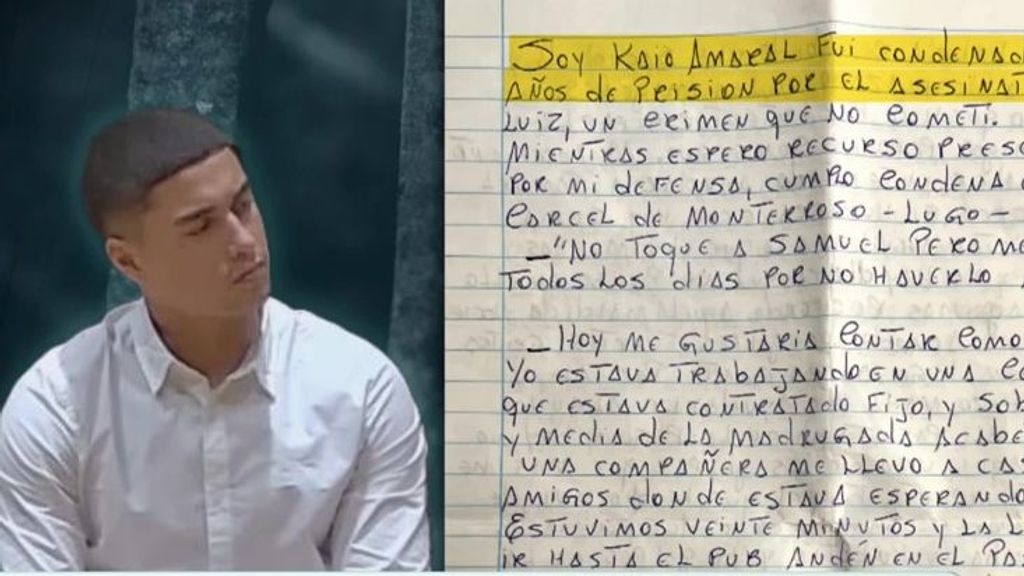 SOY KAIO AMARAL FUI CONDENADO
AÑOS de PRISION POR EL ASESINAT
LUIZ, UN CRIMEN QUE NO COMETI.
MIENTRAS ESPERO RECURSO PRESE
POR MI dEFENSA, CUMPLO CONDENA
CARCEL dE MONTERROSO - LUGO -
- "NO TOQUE A SAMUEL PERO ME
TODOS LOS dIAS POR NO HAVERLO
- HOY ME GUSTARIA CONTAR COMO
YO ESTAVA TRABAJANdO EN UNA CO
QUE ESTAVA CONTRATADO FIJO, Y SOB
Y MEDIA dE LA MADRUGADA ACABE
UNA COMPAÑERA ME LLEVO A CAS
AMIGOS dONdE ESTAVA ESPERANDO
ESTUVIMOS VEINTE MINUTOS Y LA L
IR HASTA EL PUB ANDÉN EN EL PA